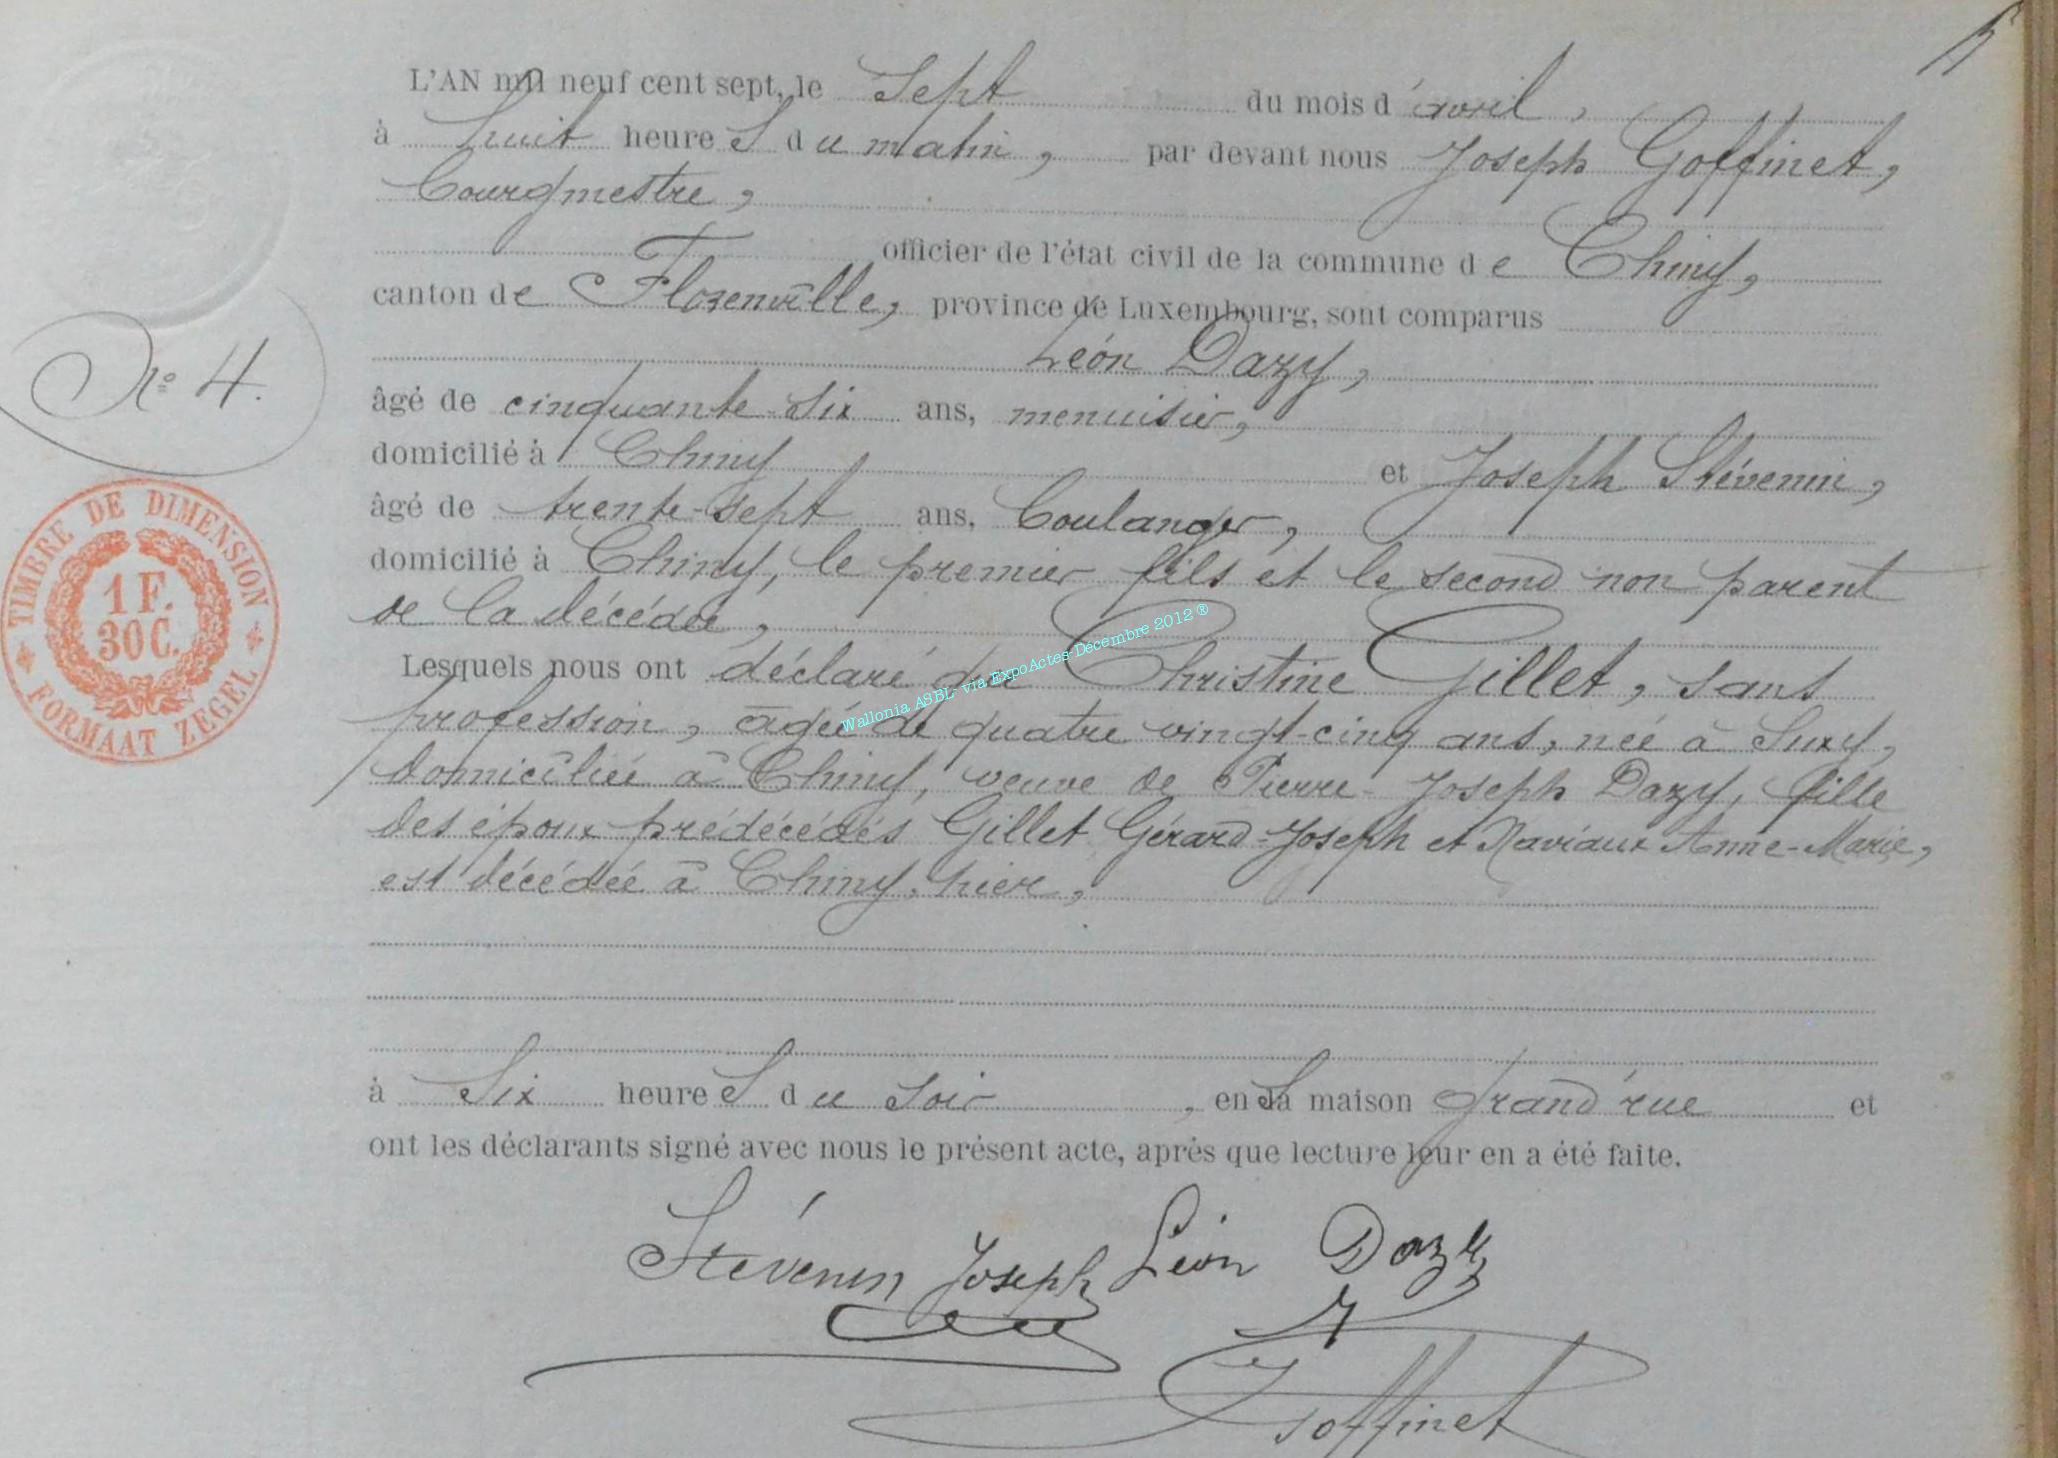 5
L'AN mil neuf cent sept, le Sept du mois d'avril,
à huit heures du matin, par devant nous Joseph Goffinet,
bourgmestre,
officier de l'état civil de la commune de Chiny,
canton de Florenville, province de Luxembourg, sont comparus
N° 4.
Léon Dazy,
âgé de cinquante-six ans, menuisier,
domicilié à Chiny et Joseph Stévenin,
âgé de trente-sept ans, boulanger,
domicilié à Chiny, le premier fils et le second non parent
de la décédée,
TIMBRE DE DIMENSION
1 F.
30 C.
FORMAAT ZEGEL
Lesquels nous ont déclaré que Christine Gillet, sans
profession, âgée de quatre vingt-cinq ans, née à Suxy,
domiciliée à Chiny, veuve de Pierre-Joseph Dazy, fille
des époux prédécédés Gillet Gérard-Joseph et Naviaux Anne-Marie,
est décédée à Chiny, hier,
Wallonia ASBL- via ExpoActes-Décembre 2012 ®
à Six heures du soir, en sa maison Grand'rue et
ont les déclarants signé avec nous le présent acte, après que lecture leur en a été faite.
Stévenin Joseph Léon Dazy
Goffinet